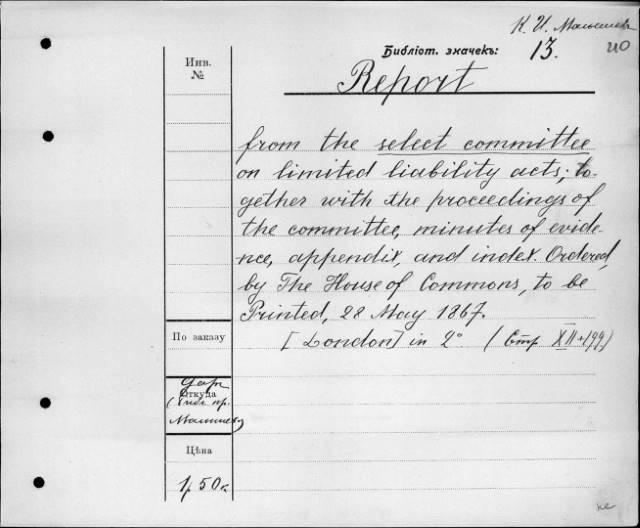 К. И. Малышев
Библіот. значекъ: 13.
Инв.
№
Report
from the select committee
on limited liability acts; to-
gether with the proceedings of
the committee, minutes of evide-
nce, appendix, and index. Ordered,
by The House of Commons, to be
Printed, 28 May 1867.
[London] in 2° (Стр XII+199)
По заказу
Даръ
Откуда
Цѣна
1р 50к